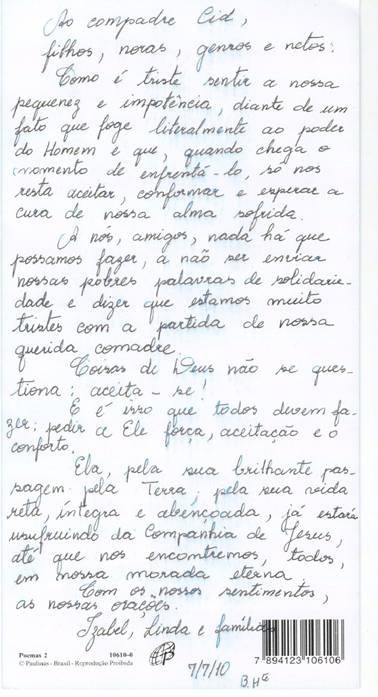 Ao compadre Cid,
filhos, noras, genros e netos:
Como é triste sentir a nossa
pequenez e impotência, diante de um
fato que foge literalmente ao poder
do Homem e que, quando chega o
momento de enfrentá-lo, só nos
resta aceitar, conformar e esperar a
cura de nossa alma sofrida.
A nós, amigos, nada há que
possamos fazer, a não ser enviar
nossas pobres palavras de solidarie-
dade e dizer que estamos muito
tristes com a partida de nossa
querida comadre.
Coisas de Deus não se ques-
tiona; aceita-se!
E é isso que todos devem fa-
zer: pedir a Ele força, aceitação e o
conforto.
Ela, pela sua brilhante pas-
sagem pela Terra, pela sua vida
reta, íntegra e abençoada, já estará
usufruindo da Companhia de Jesus,
até que nos encontremos, todos,
em nossa morada eterna.
Com os nossos sentimentos,
as nossas orações.
Izabel, Linda e família
7/7/10
B. Hte
Poemas 2 10610-6
© Paulinas - Brasil - Reprodução Proibida
7 894123 106106